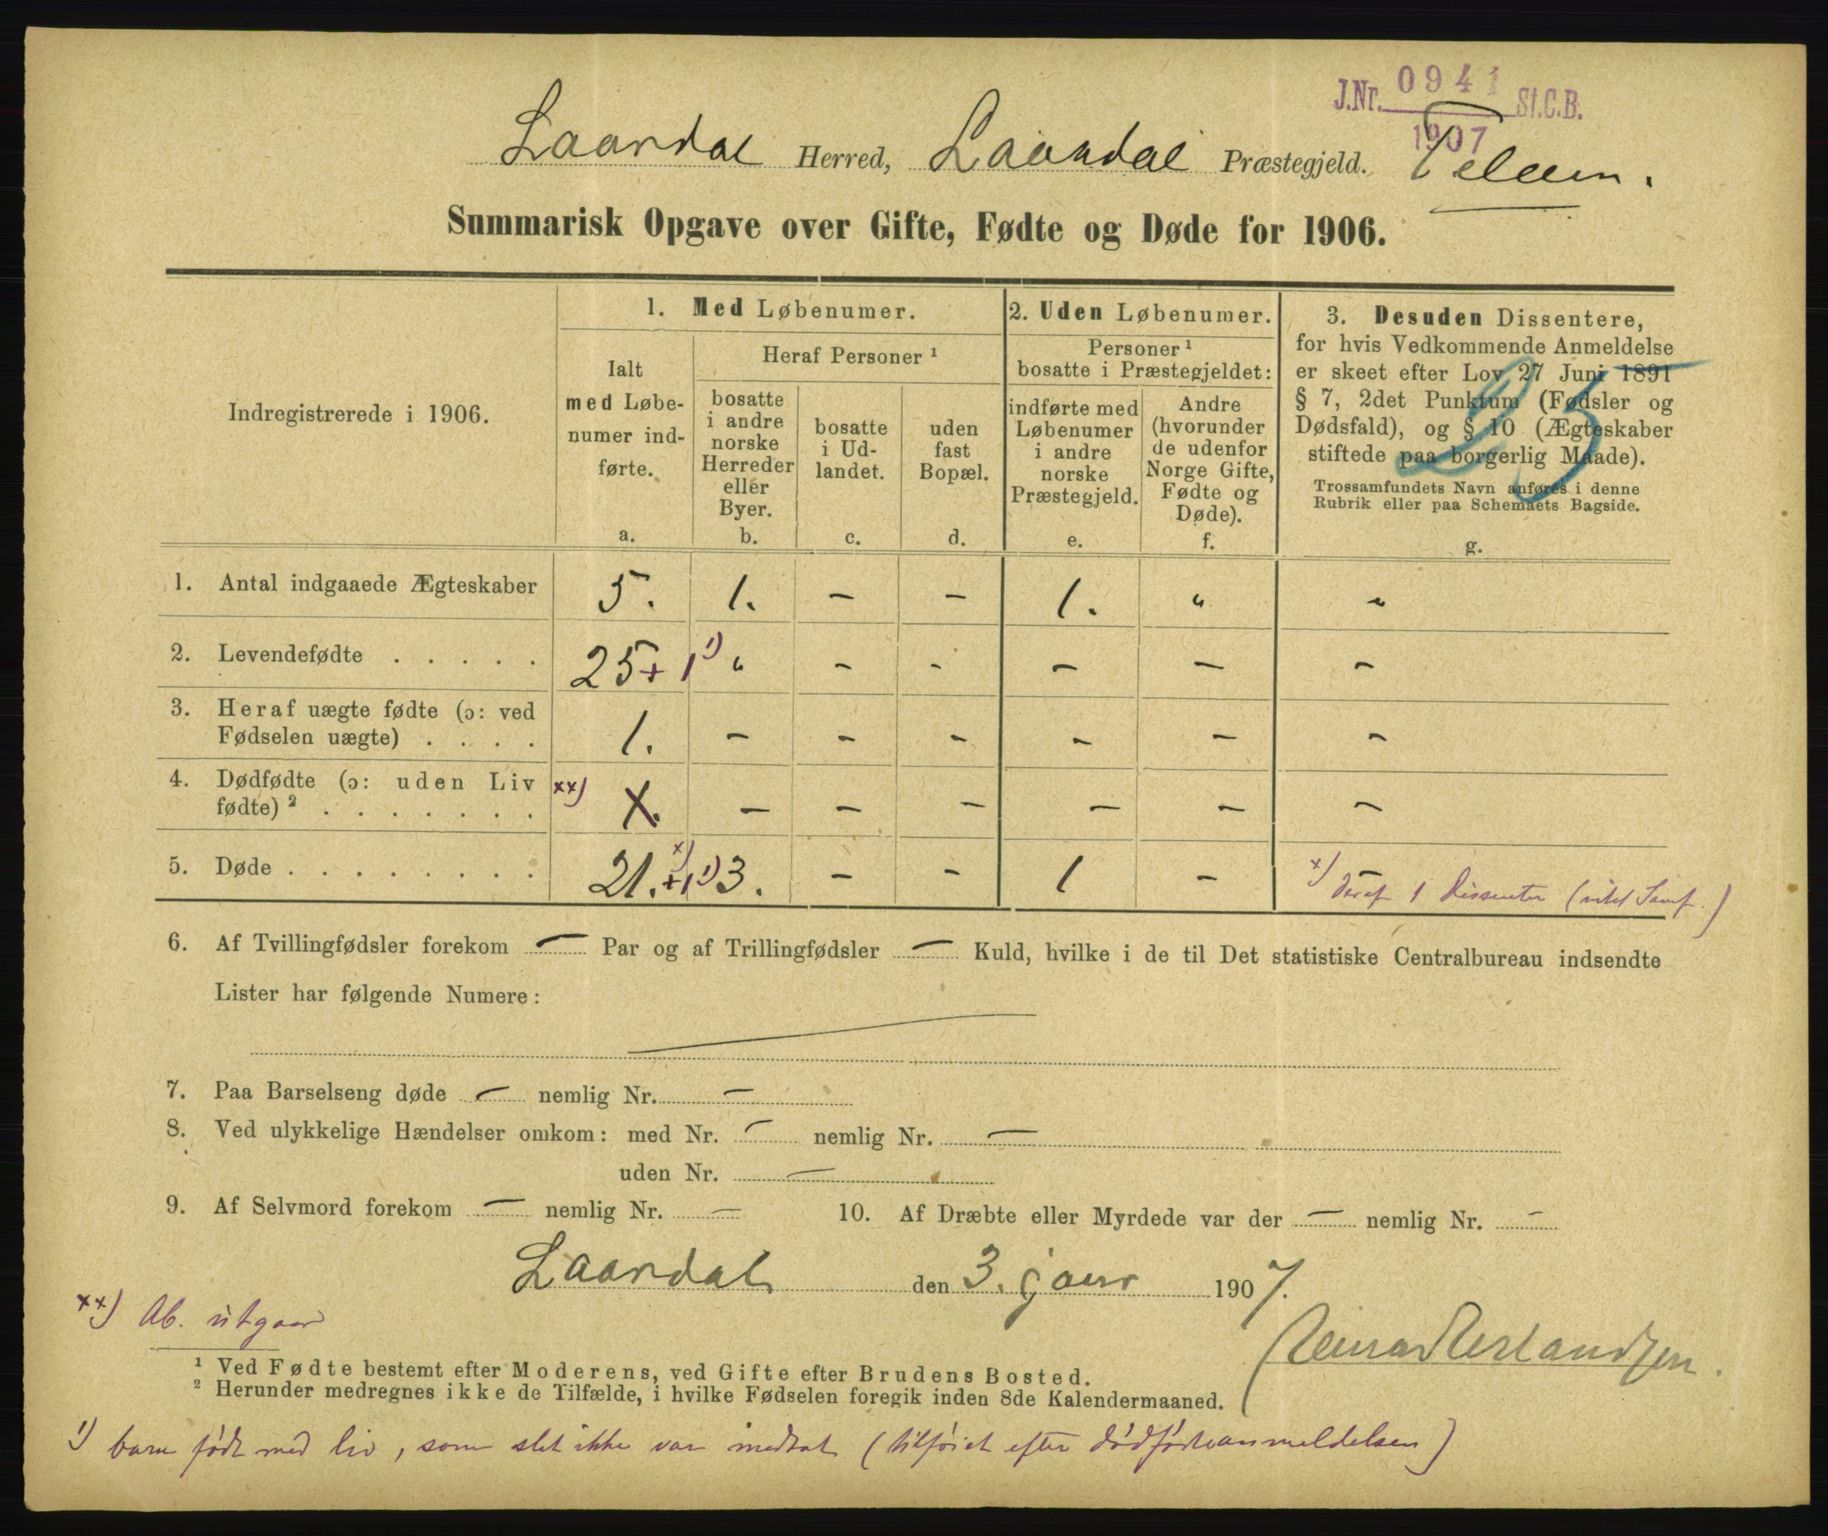 J.Nr. 0941 St.C.B.
1907
Laardal Herred, Laardal Præstegjeld.
Summarisk Opgave over Gifte, Fødte og Døde for 1906.
Indregistrerede i 1906.
1. Med Løbenumer.
Ialt
med Løbe-
numer ind-
førte.
a.
Heraf Personer ¹
bosatte
i andre
norske
Herreder
eller
Byer.
b.
bosatte
i Ud-
landet.
c.
uden
fast
Bopæl.
d.
2. Uden Løbenumer.
Personer ¹
bosatte i Præstegjeldet:
indførte med
Løbenumer
i andre
norske
Præstegjeld.
e.
Andre
(hvorunder
de udenfor
Norge Gifte,
Fødte og
Døde).
f.
3. Desuden Dissentere,
for hvis Vedkommende Anmeldelse
er skeet efter Lov 27 Juni 1891
§ 7, 2det Punktum (Fødsler og
Dødsfald), og § 10 (Ægteskaber
stiftede paa borgerlig Maade).
Trossamfundets Navn anføres i denne
Rubrik eller paa Schemaets Bagside.
g.
23
1. Antal indgaaede Ægteskaber 5. 1. – – 1. " "
2. Levendefødte . . . . . 25 + 1 ¹) " – – – – –
3. Heraf uægte fødte (ɔ: ved
Fødselen uægte) . . . . 1. – – – – – –
4. Dødfødte (ɔ: uden Liv
fødte) ² . . . . . . . xx) X. – – – – – –
5. Døde . . . . . . . . 21. x) +1 ¹) 3. – – 1 – –
x) deraf 1 Dissenter
6. Af Tvillingfødsler forekom — Par og af Trillingfødsler — Kuld, hvilke i de til Det statistiske Centralbureau indsendte
Lister har følgende Numere:
7. Paa Barselseng døde — nemlig Nr. —
8. Ved ulykkelige Hændelser omkom: med Nr. — nemlig Nr. —
uden Nr. —
9. Af Selvmord forekom — nemlig Nr. — 10. Af Dræbte eller Myrdede var der — nemlig Nr. —
Laardal den 3. januar 1907.
xx) Ab. utgaar
¹ Ved Fødte bestemt efter Moderens, ved Gifte efter Brudens Bosted.
² Herunder medregnes ikke de Tilfælde, i hvilke Fødselen foregik inden 8de Kalendermaaned.
¹) barn født med liv, som slet ikke var medtat (tilføiet efter dødfødteanmeldelsen)